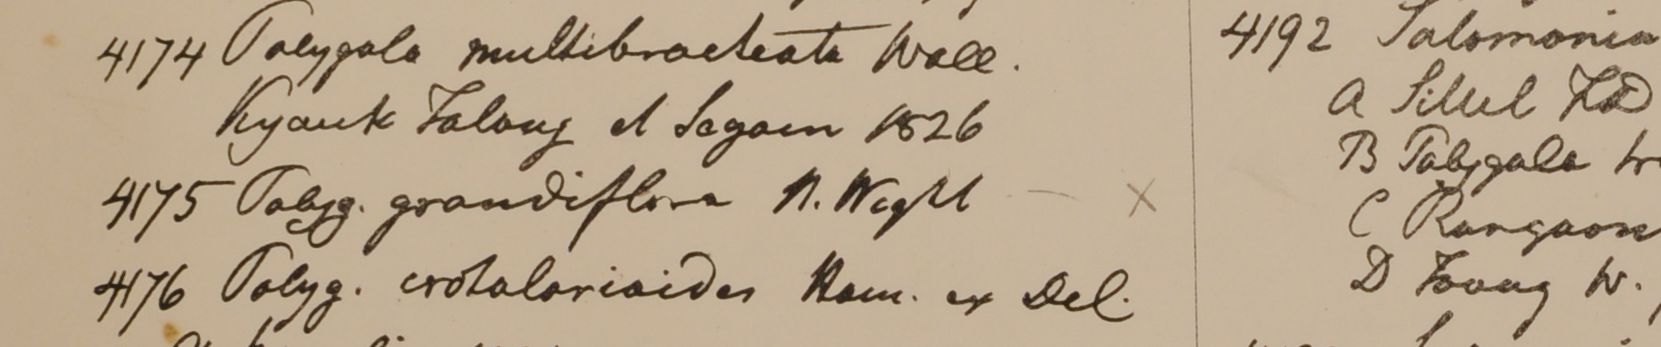 4174 Polygala multibracteata Wall.
Kyauk Talong et Segaen 1826
4175 Polyg. grandiflora R. Wight – X
4176 Polyg. crotalarioides Ham. ex Del.
4192 Salomonia
A Sillet FD
B Polygala
C Rangaon
D Tavoy W.